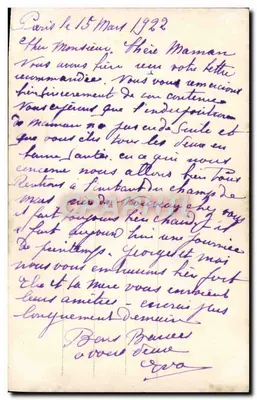 Paris le 15 Mars 1922
Cher Monsieur, Chère Maman
Nous avons bien reçu votre lettre
recommandée. Nous vous remercions
bien sincèrement de son contenu
Nous espérons que l'indisposition
de maman n'a pas eu de suite et
que vous êtes tous les deux en
bonne santé. en ce qui nous
concerne nous allons bien tous
Rentrons à l'instant du champs de
mars
il fait toujours bien chaud
il fait aujourd'hui une journée
de printemps. Georges et moi
nous vous embrassons bien fort
et sa mère vous envoient
leurs amitiés - écrirai plus
longuement demain
Bons Baisers
à vous deux
Eva